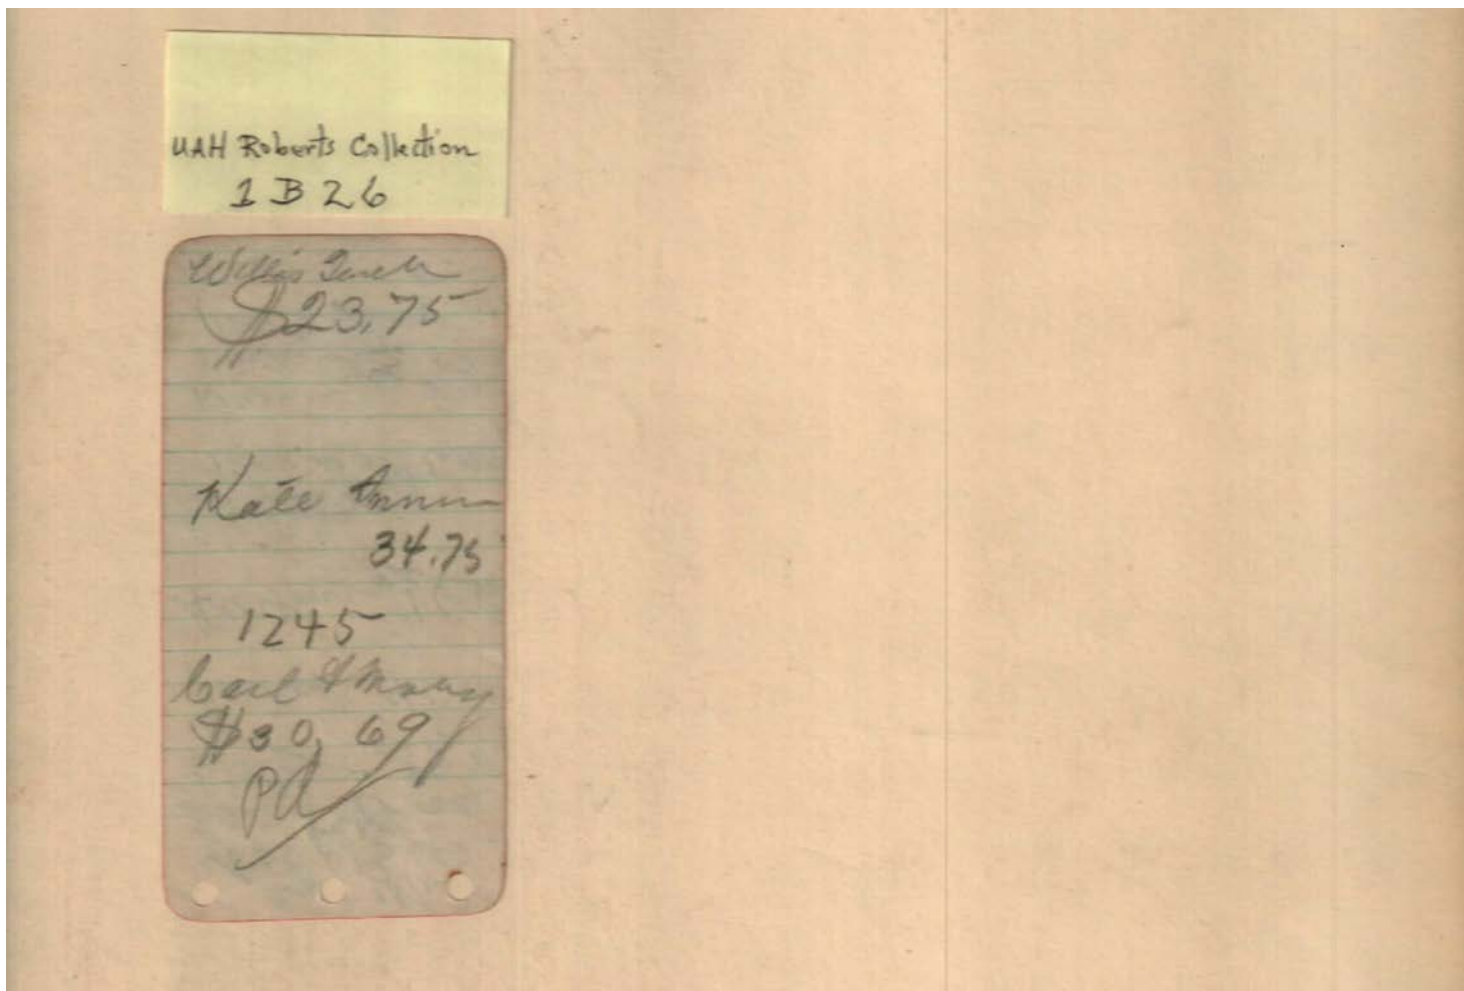 UAH Roberts Collection
1 B 26
Willis
$23.75
Kate
34.75
1245
Carl
$30.69
Pd